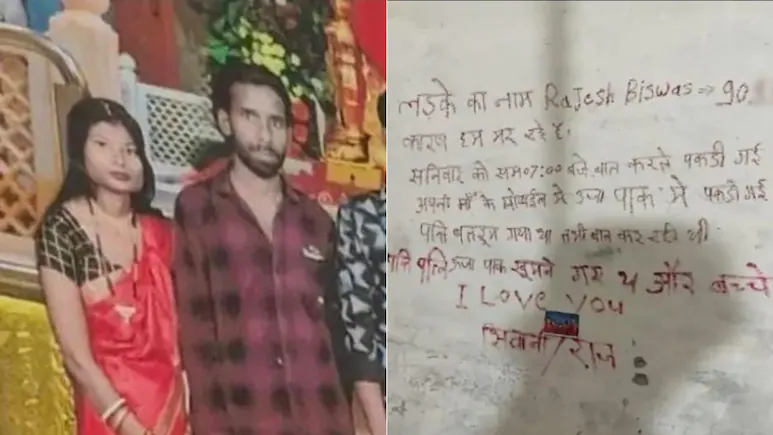 लड़के का नाम Rajesh Biswas → 90
कारण हम मर रहे है।
सनिवार को सम 07:00 बजे बात करते पकडी गई
अपनी माँ के मोबाईल मे ऊर्जा पाक मे पकडी गई
पति बतरूम गया था तभी बात कर रही थी
पति पत्नि ऊर्जा पाक घूमने गए थे और बच्चे
I Love You
शिवानी/राज